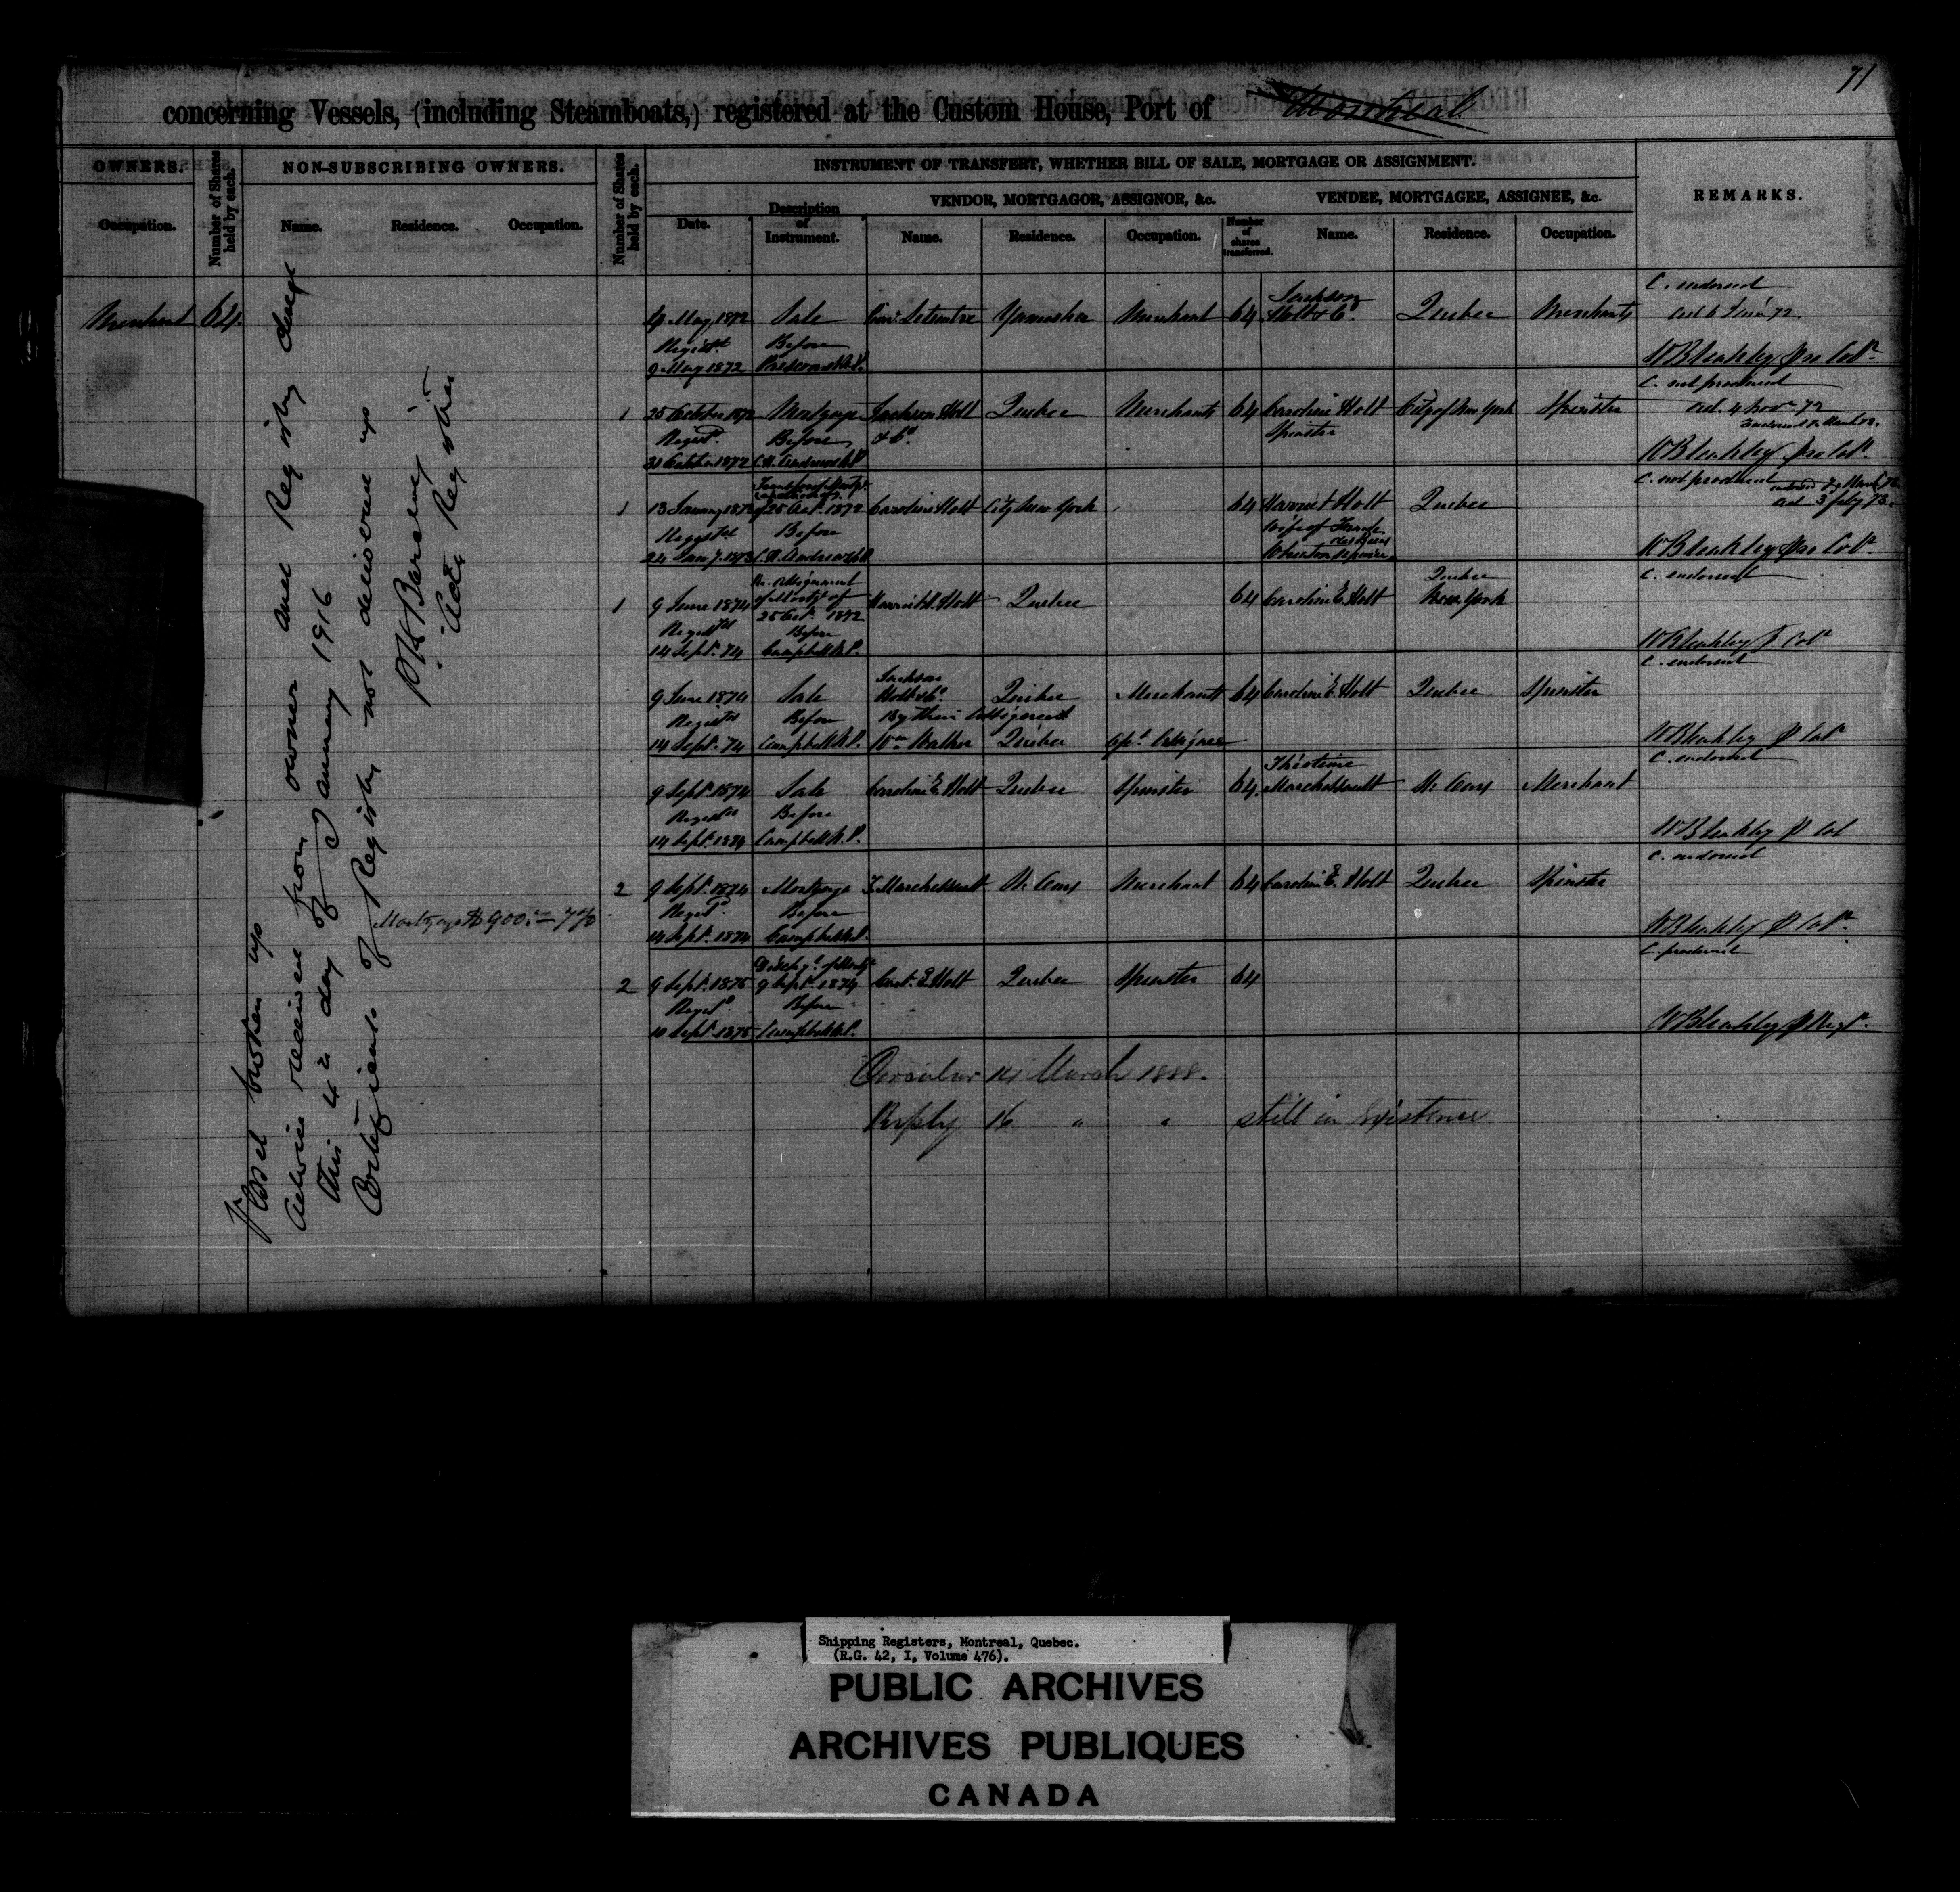 71
concerning Vessels, (including Steamboats,) registered at the Custom House, Port of Montreal
OWNERS.
Occupation.
Number of Shares held by each.
NON-SUBSCRIBING OWNERS.
Name. Residence. Occupation.
Number of Shares held by each.
INSTRUMENT OF TRANSFERT, WHETHER BILL OF SALE, MORTGAGE OR ASSIGNMENT.
Date.
Description of Instrument.
VENDOR, MORTGAGOR, ASSIGNOR, &c.
Name. Residence. Occupation.
Number of shares transferred.
VENDEE, MORTGAGEE, ASSIGNEE, &c.
Name. Residence. Occupation.
REMARKS.
Merchant 64
Vessel broken up
Advice received from owner and Registry closed
this 4th day of January 1916
Certificate of Registry not delivered up
Actg Registrar
Mortgage $900.00 7%
C. endorsed
Jackson
4 May 1872 Sale Yamaska Merchant 64 Holt & Co. Quebec Merchants
Registd Before
9 May 1872
W Bleakley pro Colr
C. not produced
1 25 October 1872 Mortgage Jackson Holt Quebec Merchants 64 Caroline Holt City of New York Spinster
adv. 4 Nov 72
Registd Before & Co. Spinster
31 October 1872 C. N. Andrews N.P.
W Bleakley pro Colr
C. not produced
1 13 January 1873 of 25 Oct. 1872 Caroline Holt City New York 64 Harriet Holt Quebec
Registd Before wife of
24 Jany. 1873 C. N. Andrews N.P.
W Bleakley pro Colr
C. endorsed
Re. Assignment Quebec
1 9 June 1874 of Mortg of Harriet Holt Quebec 64 Caroline E. Holt New York
25 Oct. 1872
Registd Before
14 Sept. 74 Campbell N.P.
W Bleakley p Colr
C. endorsed
Jackson
9 June 1874 Sale Holt & Co. Quebec Merchants 64 Caroline E. Holt Quebec Spinster
Registd Before By their Assignee
14 Sept. 74 Campbell N.P. Wm Walker Quebec Assignee
W Bleakley p Colr
C. endorsed
Théotime
9 Sept. 1874 Sale Caroline E. Holt Quebec Spinster 64 Marchessault St. Ours Merchant
Registd Before
14 Sept. 1874 Campbell N.P.
W Bleakley p Col
C. endorsed
2 9 Sept. 1874 Mortgage T. Marchessault St. Ours Merchant 64 Caroline E. Holt Quebec Spinster
Registd Before
14 Sept. 1874 Campbell N.P.
W Bleakley p Colr
C. produced
Dischge. of Mortg
2 9 Sept. 1875 9 Sept. 1874 Carol. E. Holt Quebec Spinster 64
Registd Before
10 Sept. 1875 Campbell N.P.
W Bleakley p Regr.
Circular 14 March 1888.
Reply 16 " " still in existence
Shipping Registers, Montreal, Quebec.
(R.G. 42, I, Volume 476).
PUBLIC ARCHIVES
ARCHIVES PUBLIQUES
CANADA